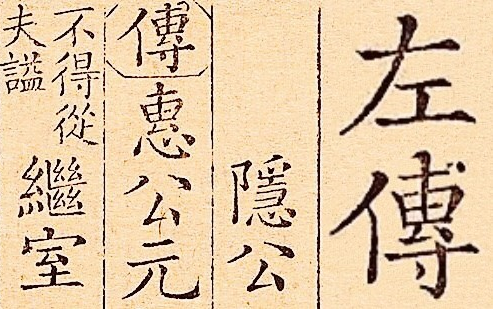 左傳
隱公
傳惠公元
不得從
夫謚
繼室